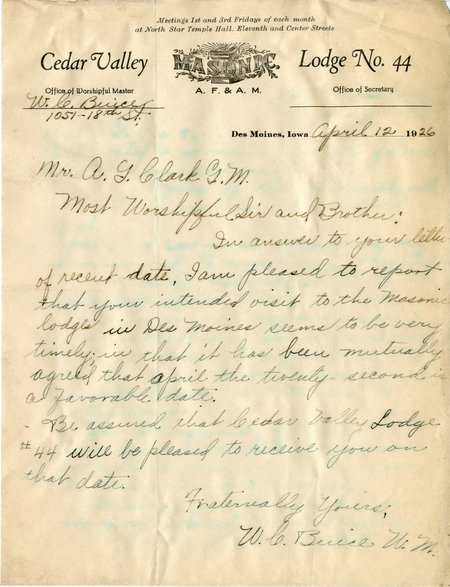 Meetings 1st and 3rd Fridays of each month
at North Star Temple Hall, Eleventh and Center Streets
Cedar Valley MASONIC Lodge No. 44
A. F. & A. M.
Office of Worshipful Master Office of Secretary
W. C. Buice
1051-18th St.
Des Moines, Iowa April 12 1926
Mr. A. G. Clark G. M.
Most Worshipful Sir and Brother:
In answer to your letter
of recent date, I am pleased to report
that your intended visit to the Masonic
lodges in Des Moines seems to be very
timely; in that it has been mutually
agreed that april the twenty-second is
a favorable date.
- Be assured that Cedar Valley Lodge
#44 will be pleased to receive you on
that date.
Fraternally Yours,
W. C. Buice W. M.